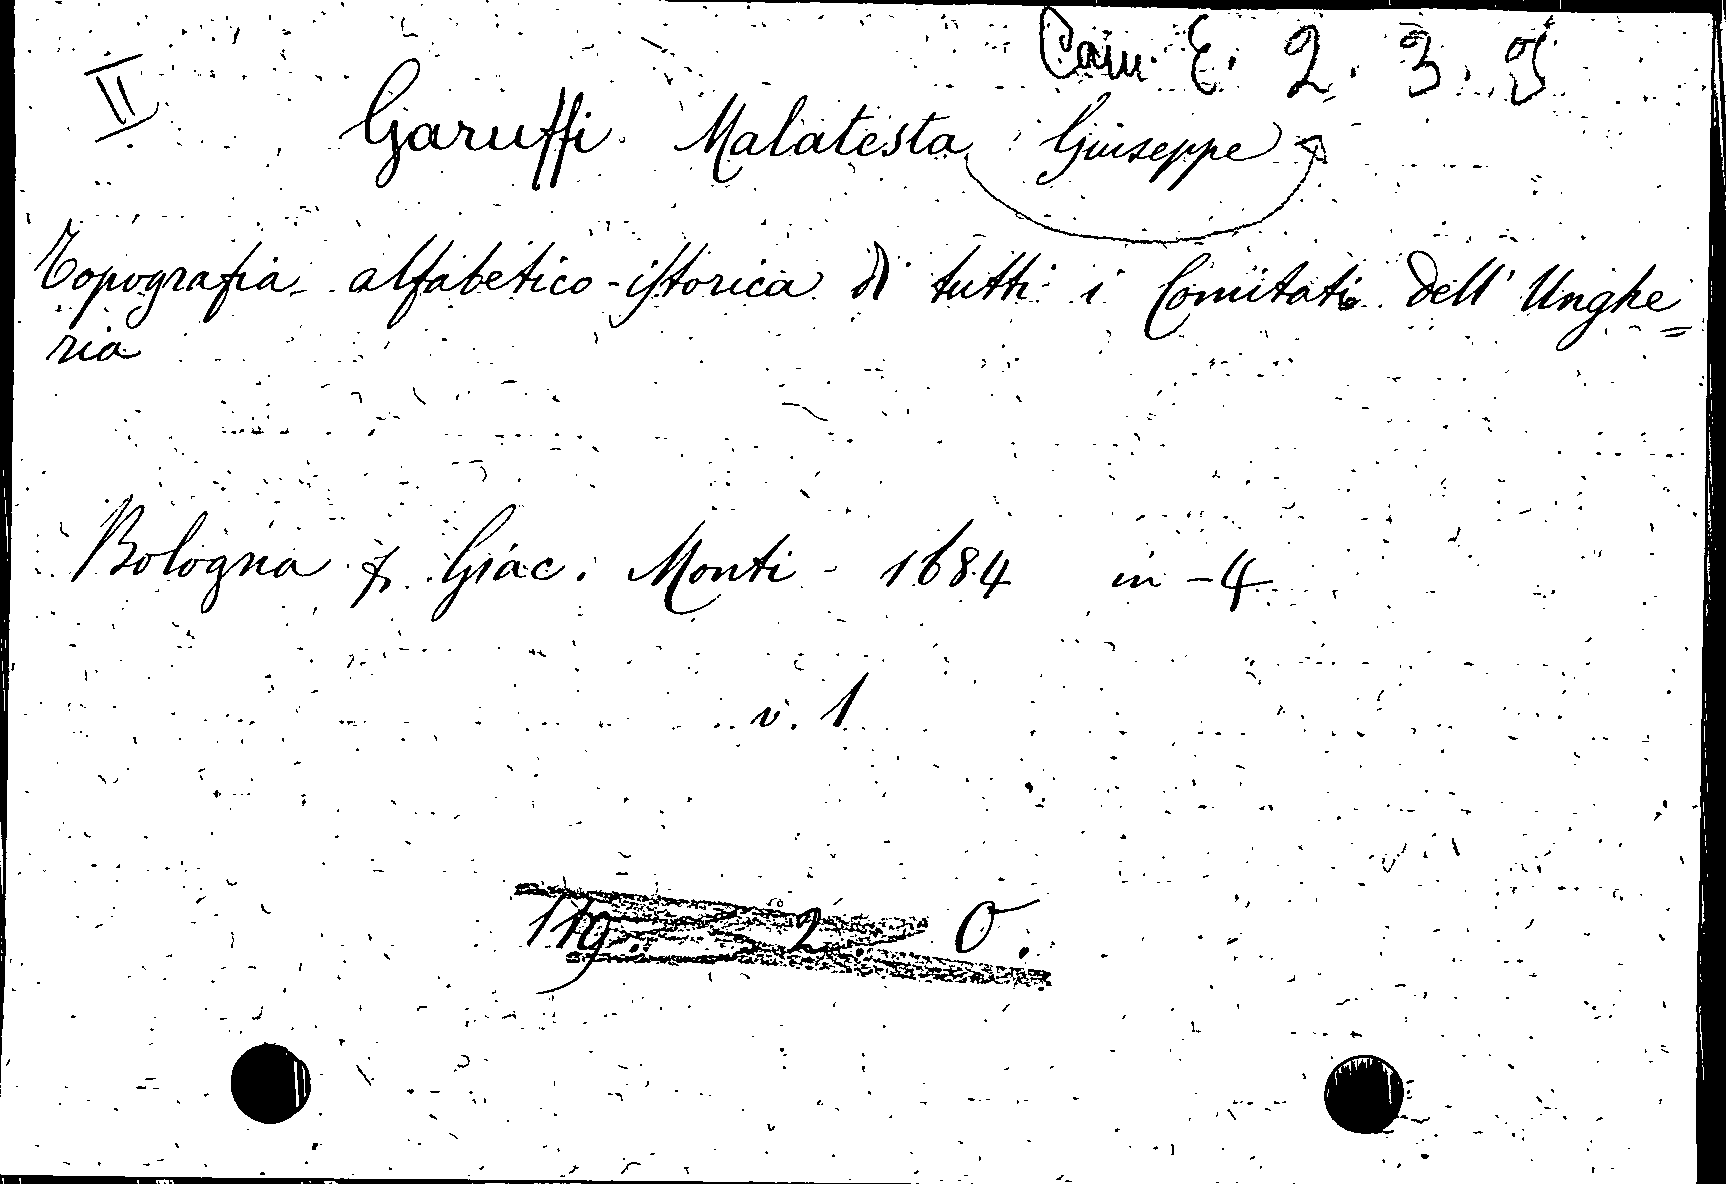 Cam. E. 2. 3. 5
II
Garuffi Malatesta Giuseppe
Topografia alfabetico-istorica di tutti i Comitati dell' Unghe=
ria
Bologna f. Giac. Monti - 1684 in-4
v. 1
119. 2. O.